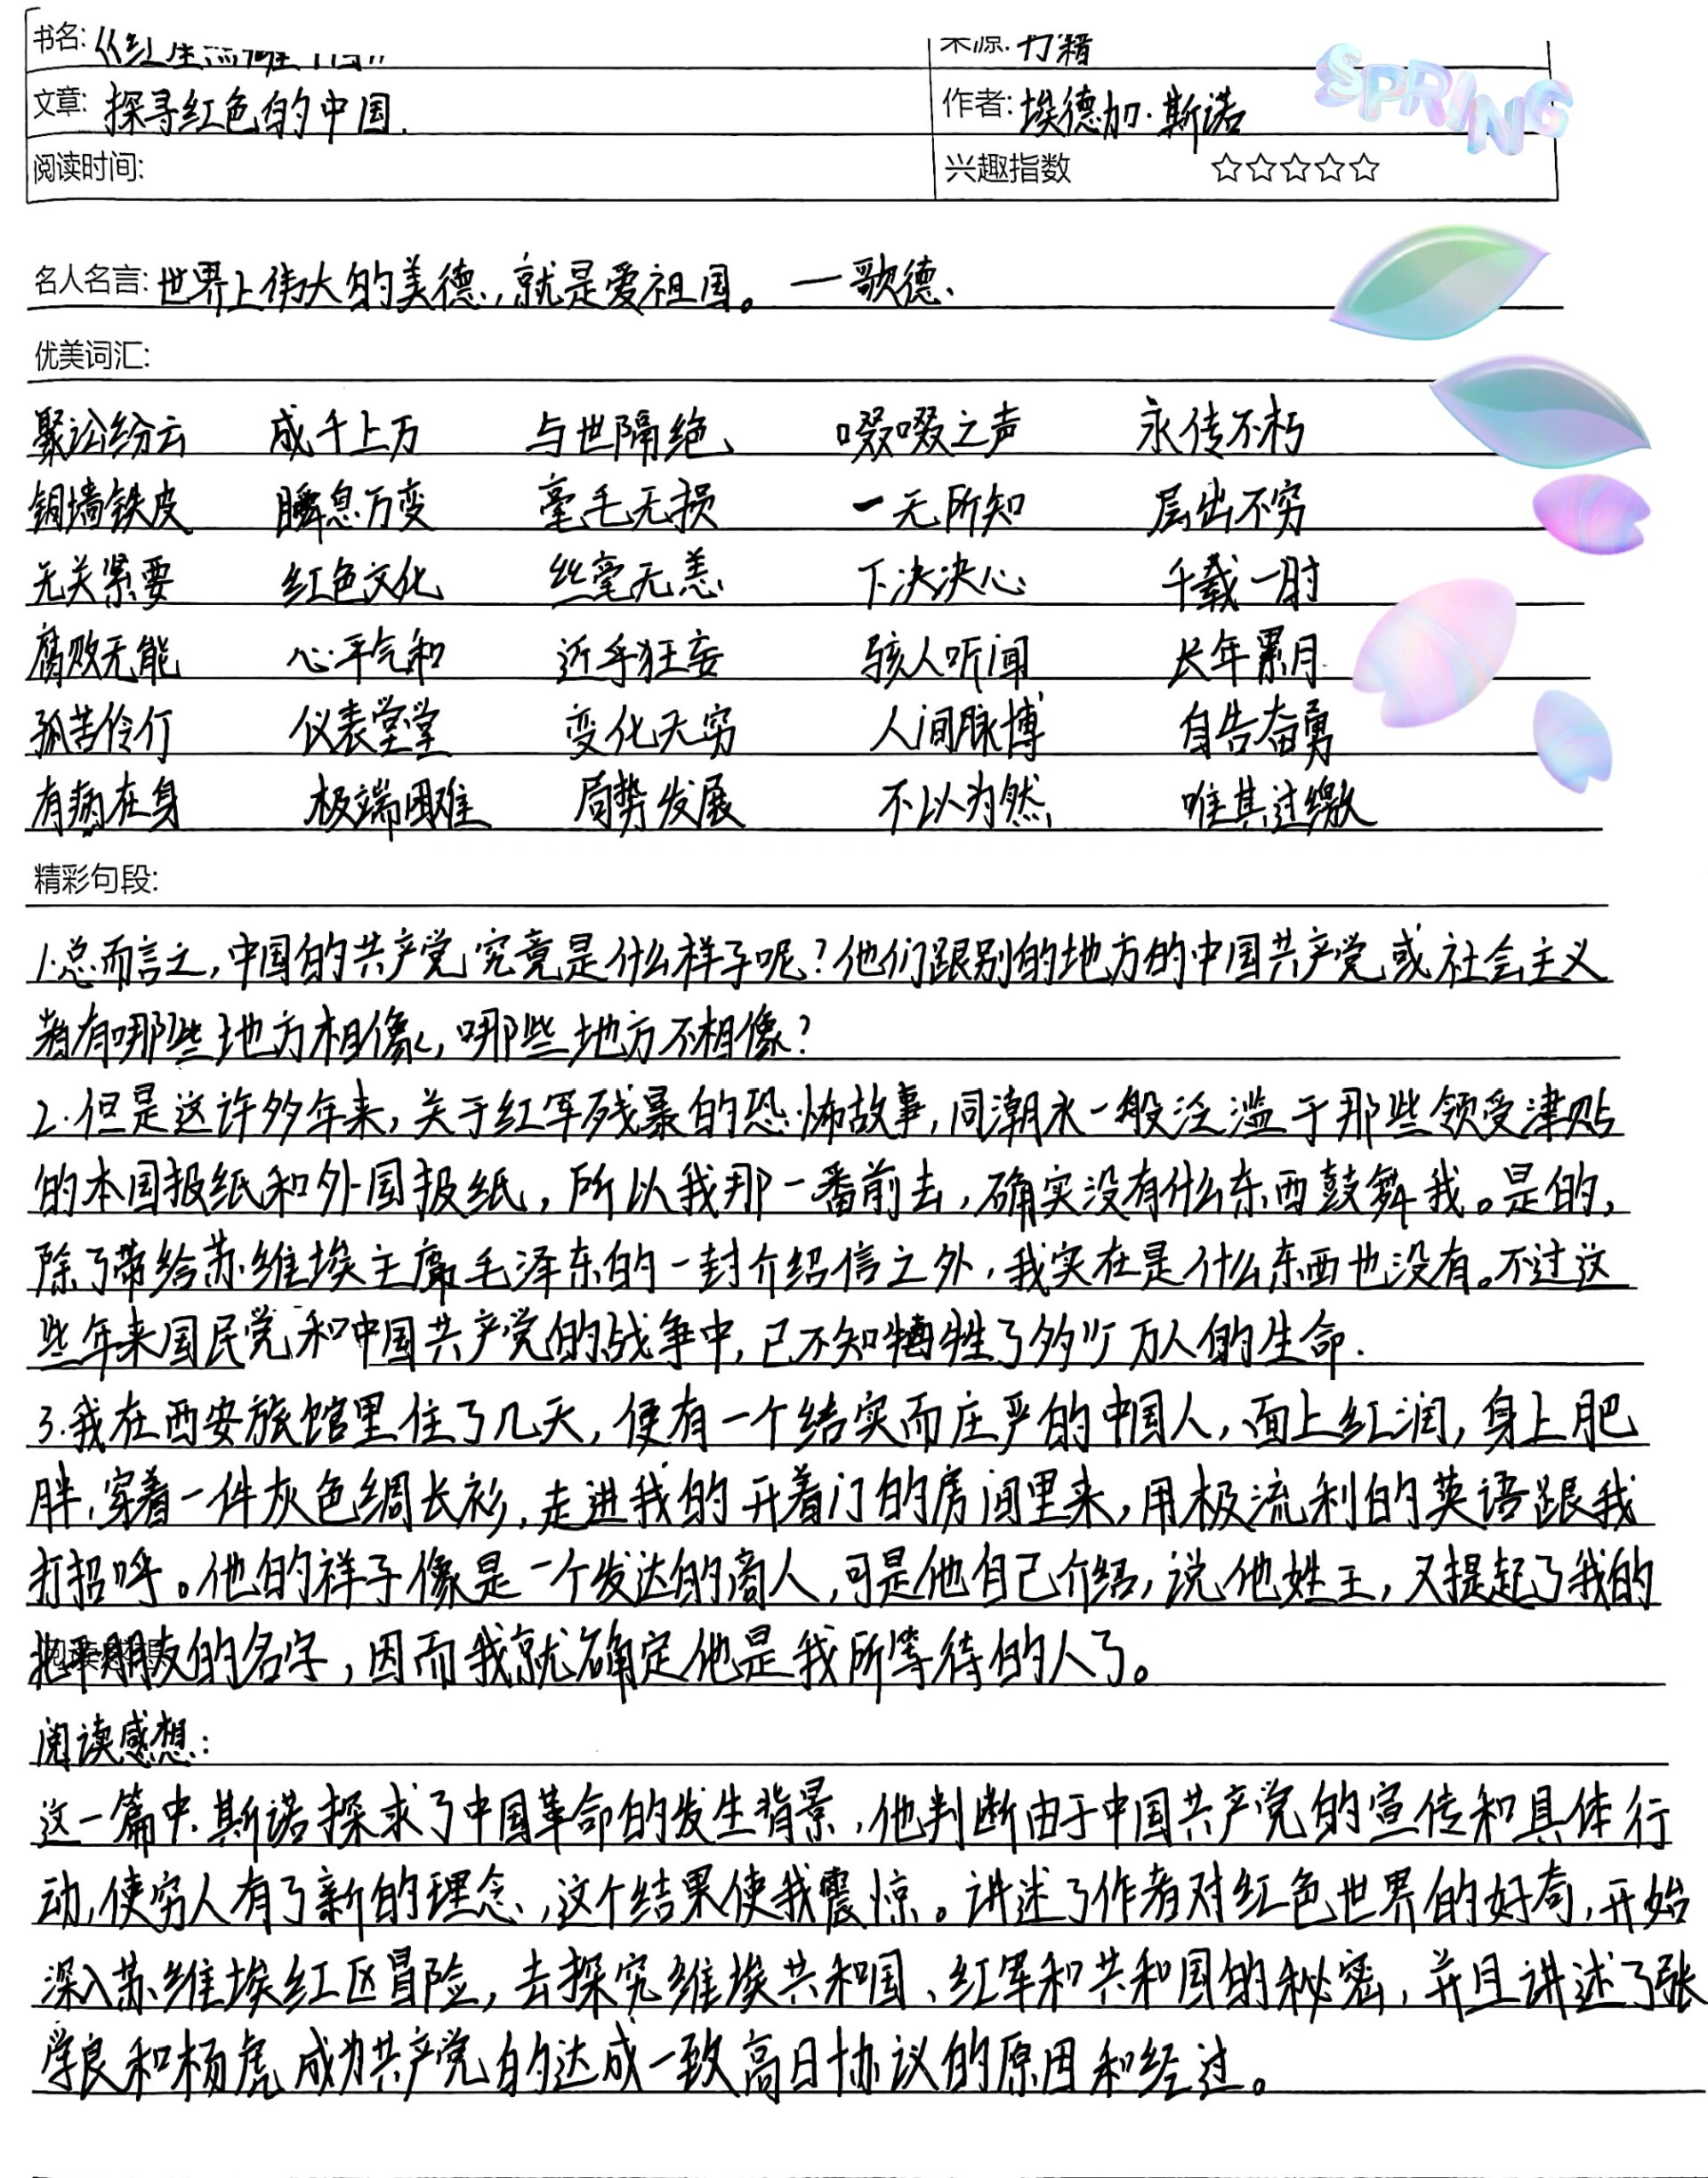 书名:
来源: 书籍
SPRING
文章: 探寻红色的中国.
作者: 埃德加·斯诺
阅读时间:
兴趣指数 ☆☆☆☆☆
名人名言: 世界上伟大的美德,就是爱祖国。—歌德.
优美词汇:
聚讼纷云 成千上万 与世隔绝 啜啜之声 永传不朽
铜墙铁皮 瞬息万变 毫毛无损 一无所知 层出不穷
无关紧要 红色文化 丝毫无恙 下决决心 千载一时
腐败无能 心平气和 近乎狂妄 骇人听闻 长年累月
孤苦伶仃 仪表堂堂 变化无穷 人间脉博 自告奋勇
有病在身 极端困难 局势发展 不以为然 唯其过缴
精彩句段:
1.总而言之,中国的共产党究竟是什么样子呢?他们跟别的地方的中国共产党或社会主义
有哪些地方相像,哪些地方不相像?
2.但是这许多年来,关于红军残暴的恐怖故事,同潮水一般泛滥于那些领受津贴
的本国报纸和外国报纸,所以我那一番前去,确实没有什么东西鼓舞我。是的,
除了带给苏维埃主席毛泽东的一封介绍信之外,我实在是什么东西也没有。不过这
些年来国民党和中国共产党的战争中,已不知牺牲了多少万人的生命.
3.我在西安旅馆里住了几天,便有一个结实而庄严的中国人,面上红润,身上肥
胖,穿着一件灰色绸长衫,走进我的开着门的房间里来,用极流利的英语跟我
打招呼。他的祥子像是一个发达的商人,可是他自己介绍,说他姓王,又提起了我的
北平朋友的名字,因而我就确定他是我所等待的人了。
阅读感想:
这一篇中.斯诺探求了中国革命的发生背景,他判断由于中国共产党的宣传和具体行
动,使穷人有了新的理念,这个结果使我震惊。讲述了作者对红色世界的好奇,开始
深入苏维埃红区冒险,去探究维埃共和国、红军和共和国的秘密,并且讲述了张
学良和杨虎成为共产党的达成一致高日协议的原因和经过。